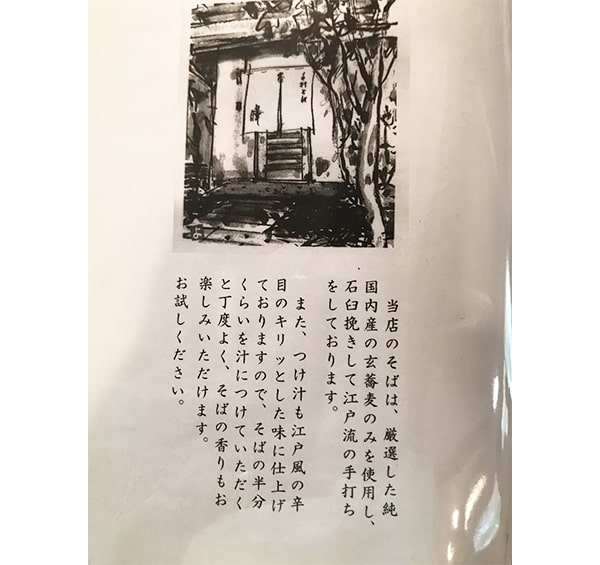 当店のそばは、厳選した純
国内産の玄蕎麦のみを使用し、
石臼挽きして江戸流の手打ち
をしております。
また、つけ汁も江戸風の辛
目のキリッとした味に仕上げ
ておりますので、そばの半分
くらいを汁につけていただく
と丁度よく、そばの香りもお
楽しみいただけます。
お試しください。